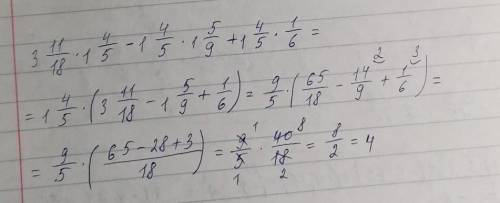 3 11/18 · 1 4/5 − 1 4/5 · 1 5/9 + 1 4/5 · 1/6 =
= 1 4/5 · (3 11/18 − 1 5/9 + 1/6) = 9/5 · (65/18 − 14/9 ² + 1/6 ³) =
= 9/5 · (65−28+3/18) = 9/5 ¹ ₁ · 40/18 ⁸ ₂ = 8/2 = 4